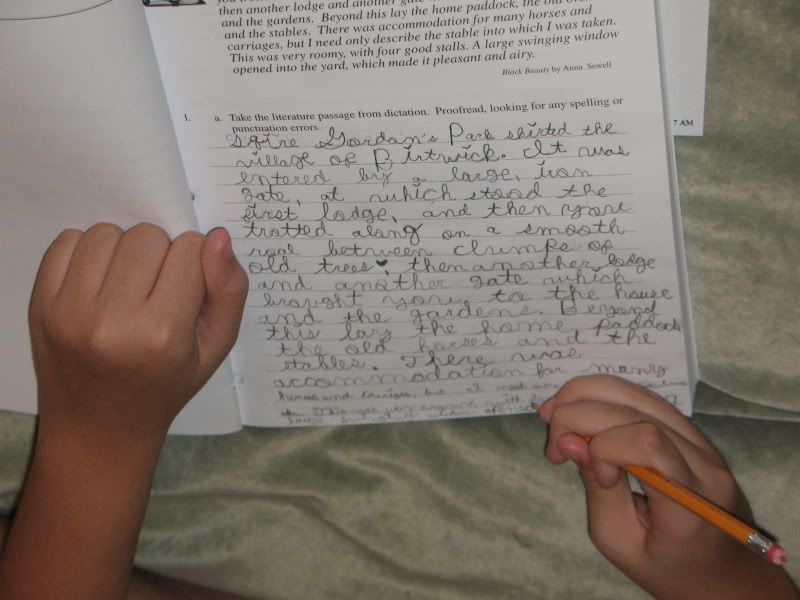 then another lodge and another gate
and the gardens. Beyond this lay the home paddock, the old
and the stables. There was accommodation for many horses and
carriages, but I need only describe the stable into which I was taken.
This was very roomy, with four good stalls. A large swinging window
opened into the yard, which made it pleasant and airy.
Black Beauty by Anna Sewell
1. a. Take the literature passage from dictation. Proofread, looking for any spelling or
punctuation errors.
7 AM
Sqire Gordan's Park skirted the
village of Birtwick. It was
entered by a large, iron
gate, at which stood the
first lodge, and then you
trotted along on a smooth
roal between clumps of
old trees, then another lodge
and another gate which
brought you to the house
and the gardens. Beyond
this lay the home paddock
the old horses and the
stables. There was
accommodation for many
horses and but I need